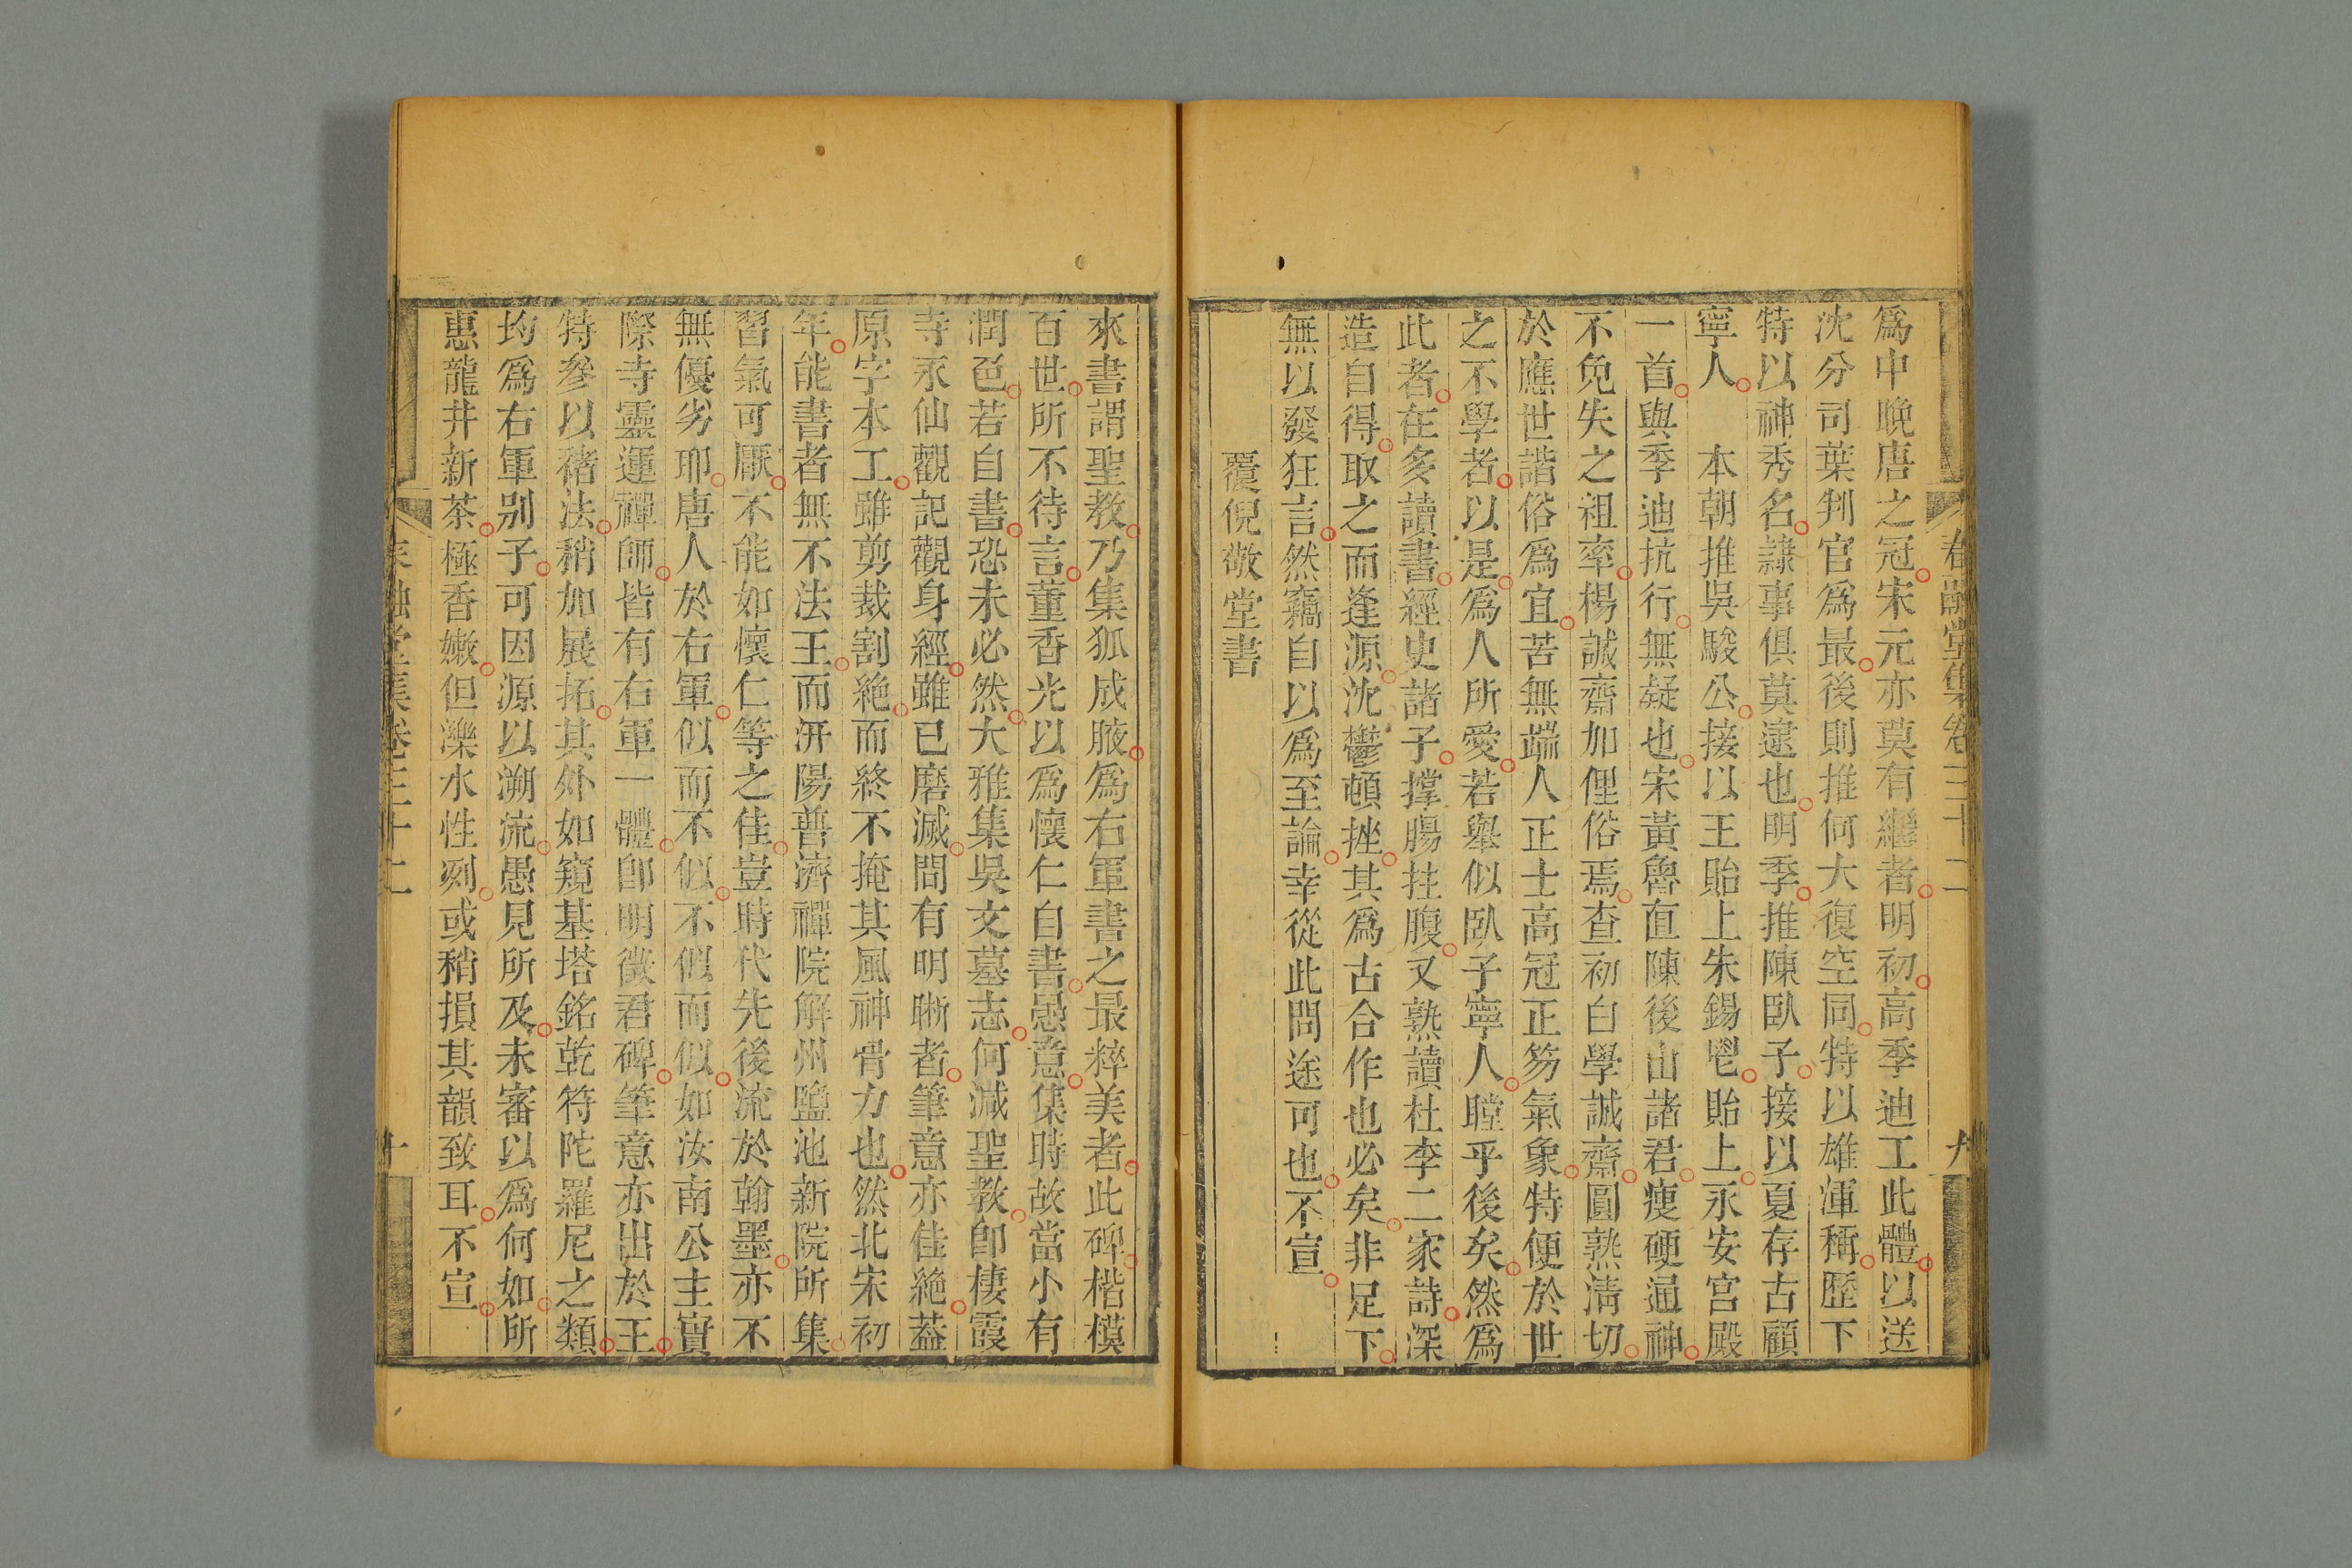 爲中晚唐之冠宋元亦莫有繼者明初高季迪工此體以送
沈分司葉判官爲最後則推何大復空同特以雄渾稱歷下
特以神秀名隷事俱莫逮也明季推陳臥子接以夏存古顧
寧人 本朝推吳駿公接以王貽上朱錫鬯貽上永安宮殿
一首與季迪抗行無疑也宋黃魯直陳後山諸君瘦硬通神
不免失之祖率楊誠齋加俚俗焉查初白學誠齋圓熟淸切
於應世諧俗爲宜苦無端人正士高冠正笏氣象特便於世
之不學者以是爲人所愛若舉似臥子寧人瞠乎後矣然爲
此者在多讀書經史諸子撐腸拄腹又熟讀杜李二家詩深
造自得取之而逢源沈鬱頓挫其爲古合作也必矣非足下
無以發狂言然竊自以爲至論幸從此問途可也不宣
覆倪敬堂書
九
來書謂聖教乃集狐成腋爲右軍書之最粹美者此碑楷模
百世所不待言董香光以爲懷仁自書愚意集時故當小有
潤色若自書恐未必然大雅集吳文墓志何減聖教卽棲霞
寺永仙觀記觀身經雖已磨滅間有明晰者筆意亦佳絶葢
原字本工雖剪裁割絶而終不掩其風神骨力也然北宋初
年能書者無不法王而汧陽普濟禪院解州鹽池新院所集
習氣可厭不能如懷仁等之佳豈時代先後流於翰墨亦不
無優劣耶唐人於右軍似而不似不似而似如汝南公主實
際寺靈運禪師皆有右軍一體卽明徵君碑筆意亦出於王
特參以禇法稍加展拓其外如窺基塔銘乾符陀羅尼之類
均爲右軍别子可因源以溯流愚見所及未審以爲何如所
惠龍井新茶極香嫩但濼水性冽或稍損其韻致耳不宣
十